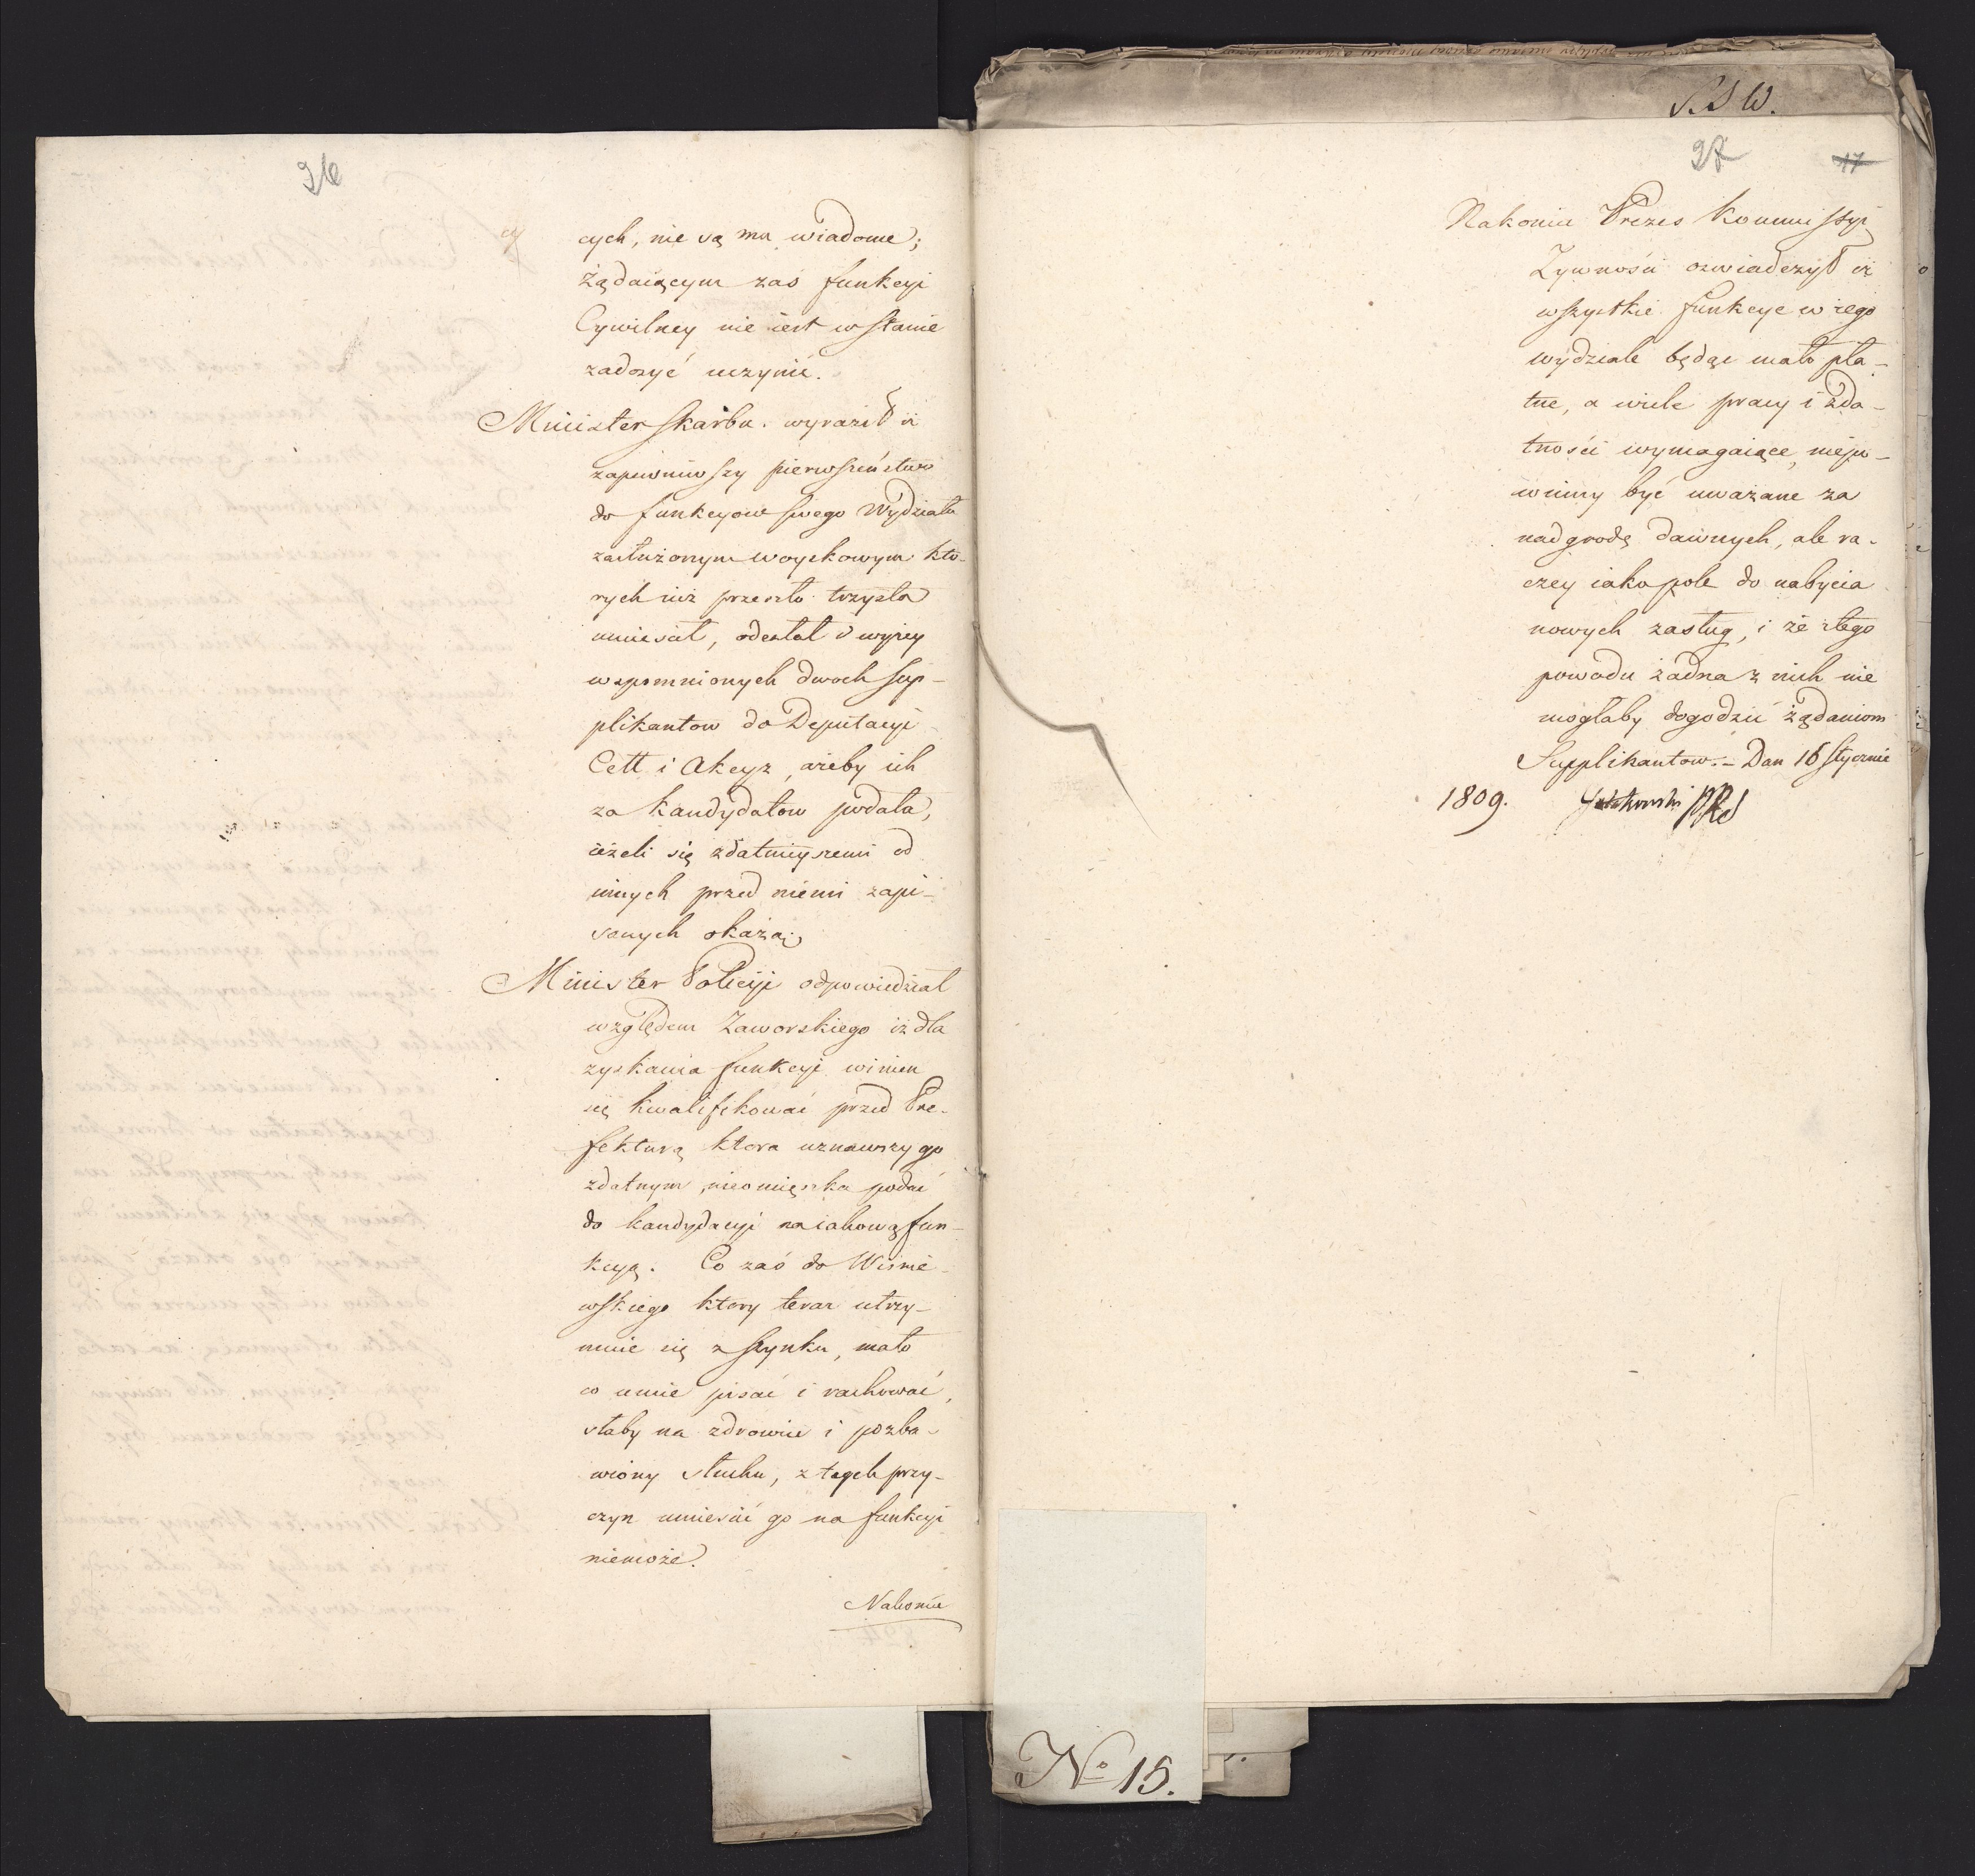 26
cych, nie są mu wiadome;
żądaiącym zaś funkcyi
Cywilney nie iest w stanie
zadosyć uczynić.
Minister Skarbu. wyraził iż
zapewniwszy pierwszeństwo
do funkcyow swego Wydziału
zasłużonym woyskowym kto-
rych iuż przeszło trzysta
umieścił, odesłał i wyżey
wspomnionych dwoch sup-
plikantow do Deputacyi
Cell i Akcyz, ażeby ich
za kandydatow podała,
ieżeli się zdatnieyszemi od
innych przed niemi zapi-
sanych okażą;
Minister Policyi odpowiedział
względem Zaworskiego iż dla
zyskania funkcyi winien
się kwalifikować przed Pre-
fekturą ktora uznawszy go
zdatnym, nieomięszka podać
do kandydacyi na iakową fun-
kcyą. Co zaś do Wiśnie-
wskiego ktory teraz utrzy-
muie się z szynku, mało
co umie pisać i rachować,
słaby na zdrowie i pozba-
wiony słuchu, z tych przy-
czyn umieścić go na funkcyi
niemoże.
Nakonie
S.W.
27 17
Nakonie Prezes Kommissyi
Żywności oświadczył iż
wszystkie funkcye w iego
wydziale będąc mało pła-
tne, a wiele pracy i zda-
tności wymagaiące, niepo-
winny być uważane za
nadgrodę dawnych, ale ra-
czey iako pole do nabycia
nowych zasług, i że z tego
powodu żadna z nich nie
mogłaby dogodzić żądaniom
Supplikantow. - Dan 16 Stycznia
1809.
No 15.